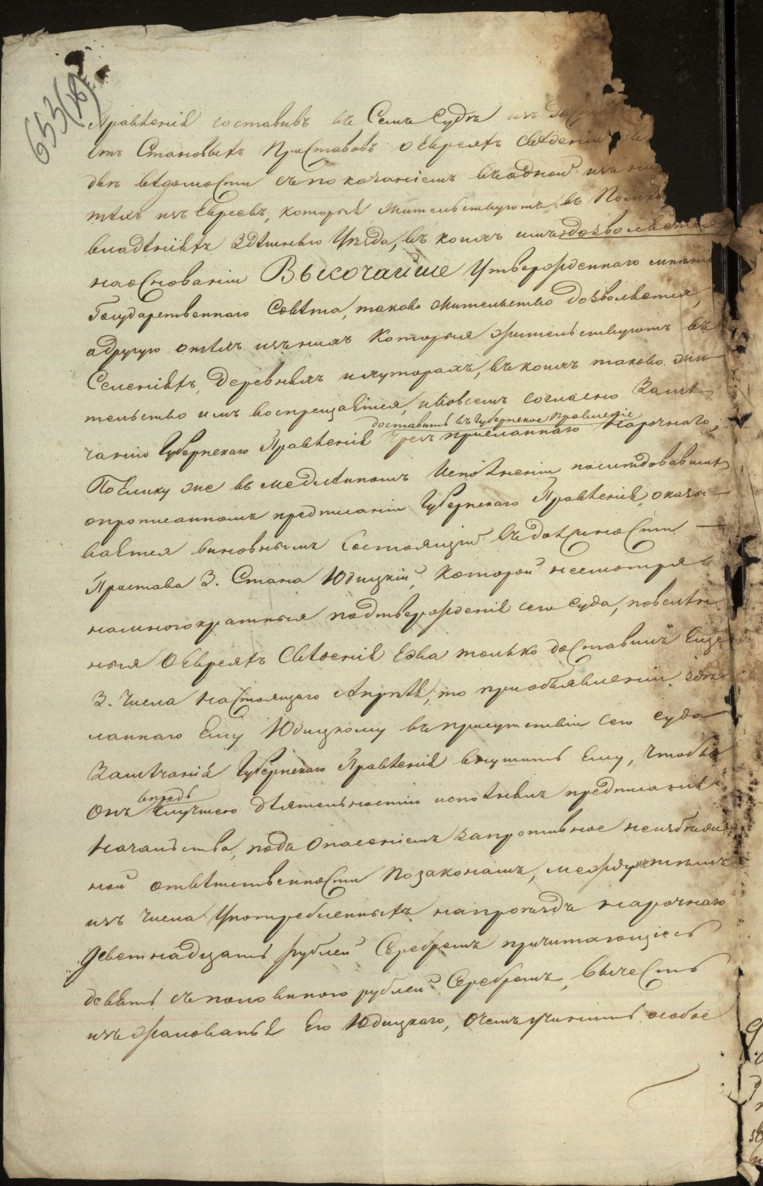 653(16)
Правленія составивъ въ Семъ Судѣ изъ
отъ Становыхъ Приставовъ о Евреяхъ свѣденій
двѣ вѣдомости съ показаніемъ въ одной изъ нихъ
тѣхъ изъ Евреевъ, которые жительствуютъ въ
владѣніяхъ здѣшняго Уѣзда, въ коихъ имъ дозволяется
на основаніи Высочайше Утвержденнаго мнѣнія
Государственнаго Совѣта, таково жительство дозволяется,
а другую о тѣхъ изъ нихъ которыя жительствуютъ въ
Селеніяхъ, Деревняхъ и хуторахъ, въ коихъ таково жи-
тельство имъ воспрещается, и во всемъ согласно Замѣ-
доставить въ Губернское Правленіе
чанію Губернскаго Правленія чрезъ присланнаго нарочнаго,
Поелику же въ медленномъ Исполненіи послѣдовавшихъ
о прописанномъ предписаній Губернскаго Правленія, оказы-
вается виновнымъ Состоящій въ должности
Пристава 3. Стана Юдицкій, который несмотря
на многократныя подтвержденія сего Суда, повелѣн-
ныя о Евреяхъ Свѣденія Едва только доставилъ
3. числа настоящаго Апрѣля, то при объявленіи здѣ-
ланнаго Ему Юдицкому въ присутствіи сего Суда
Замѣчанія Губернскаго Правленія внушить Ему, чтобы
впредь
онъ случшею дѣятельностію исполнялъ предписанія
Начальства, подъ Опасеніемъ за противное неизбѣж-
ной отвѣтственности По законамъ, между тѣмъ
изъ числа Употребленныхъ на проѣздъ нарочнаго
девятнадцати рублей Серебромъ причитающіесь
девять съ половиною рублей Серебромъ, вычесть
изъ жалованья Его Юдицкаго, о чемъ учинить особое